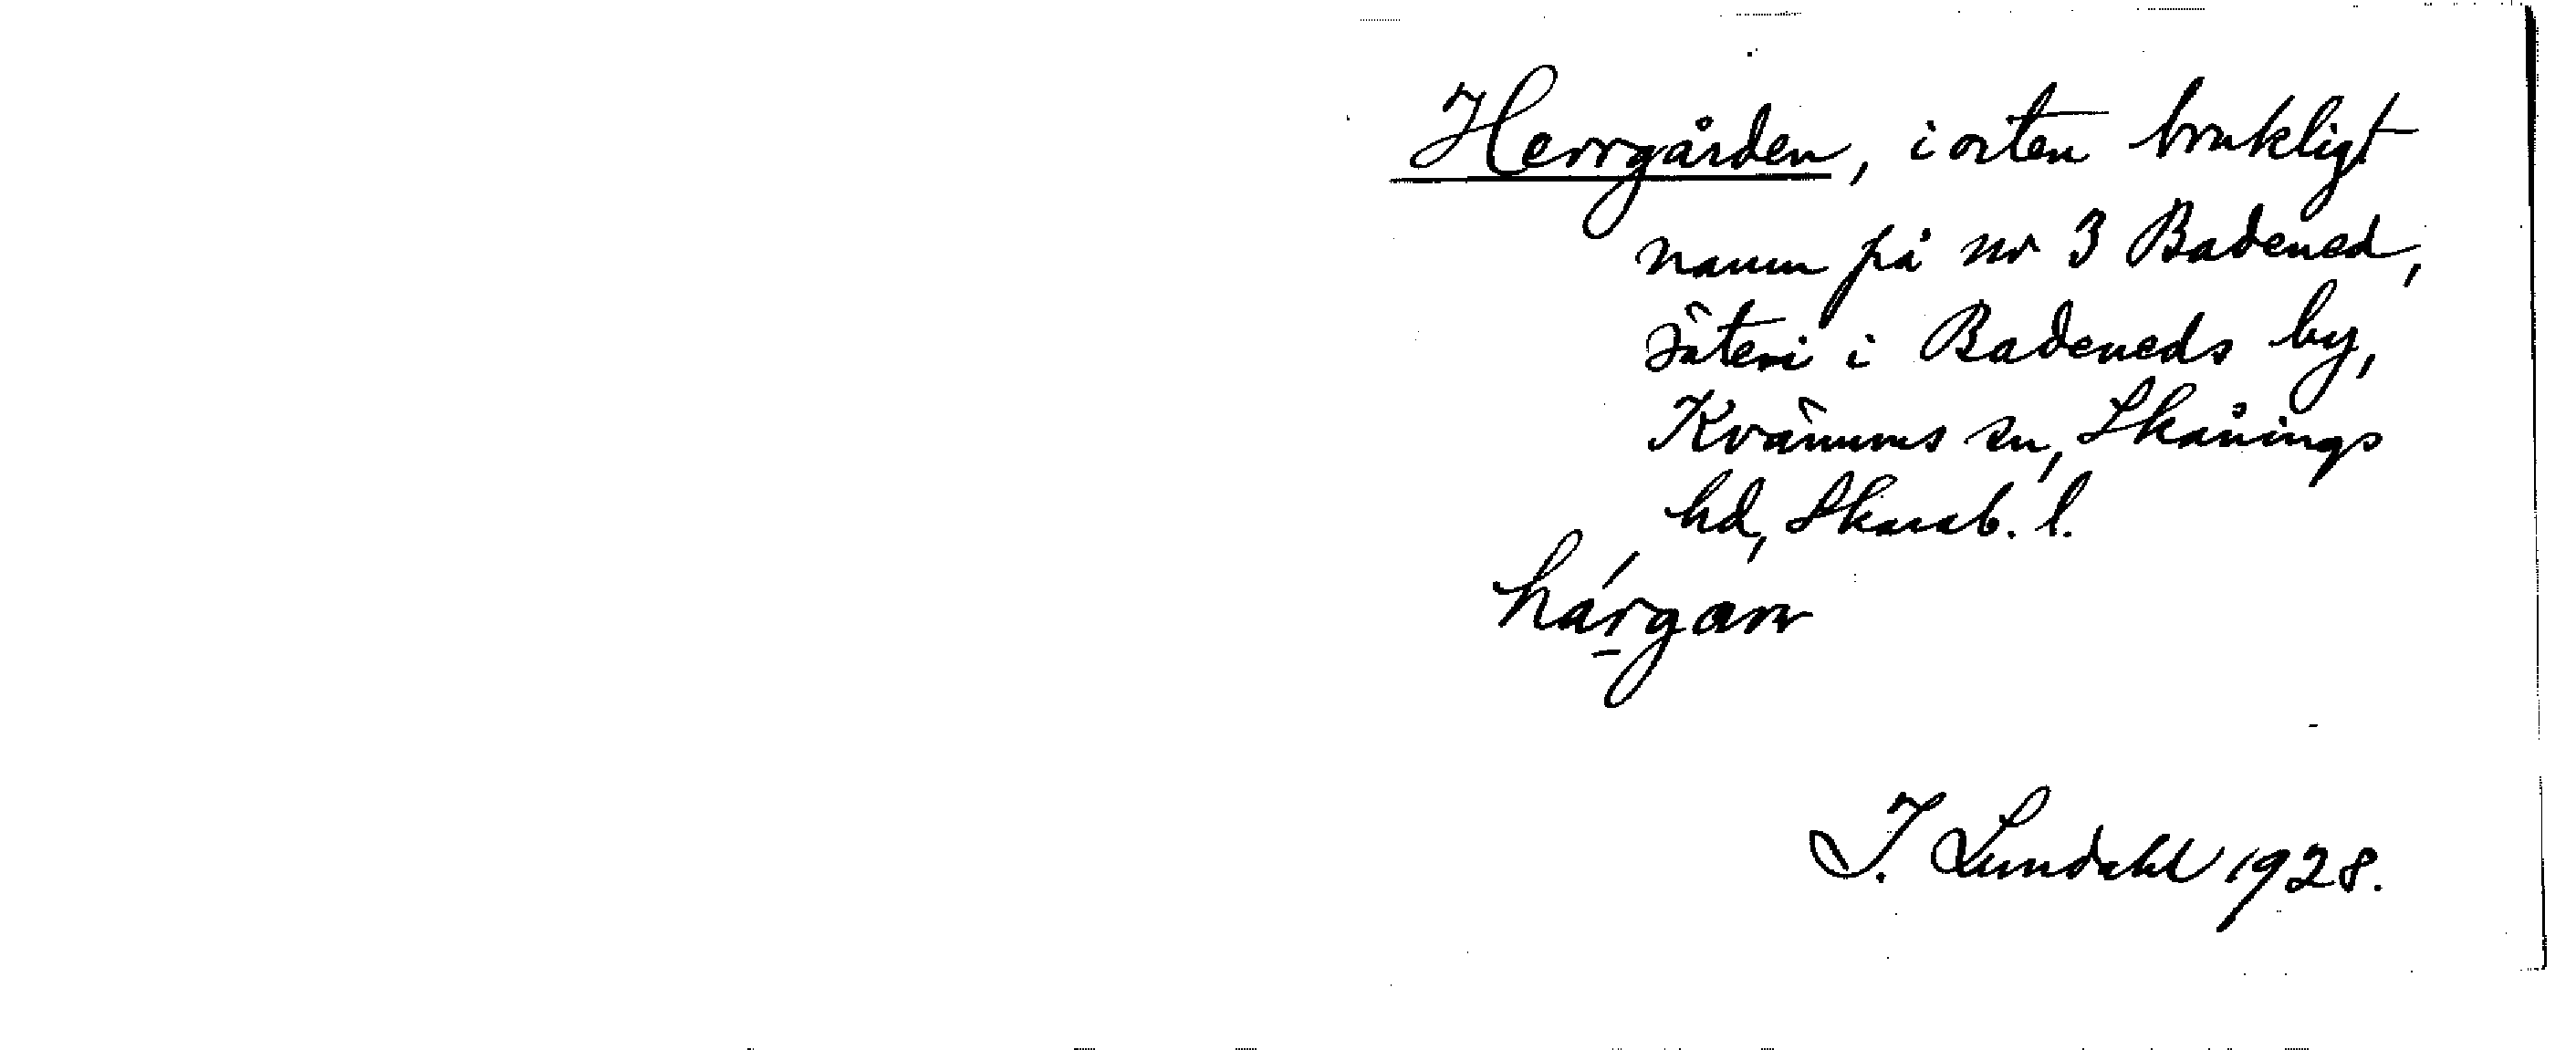 Herrgården, i orten brukligt
namn på nr 3 Badened,
säteri i Badeneds by,
Kvänums sn, Skånings
hd, Skarab. l.
hárgaɴ
I. Lundahl 1928.